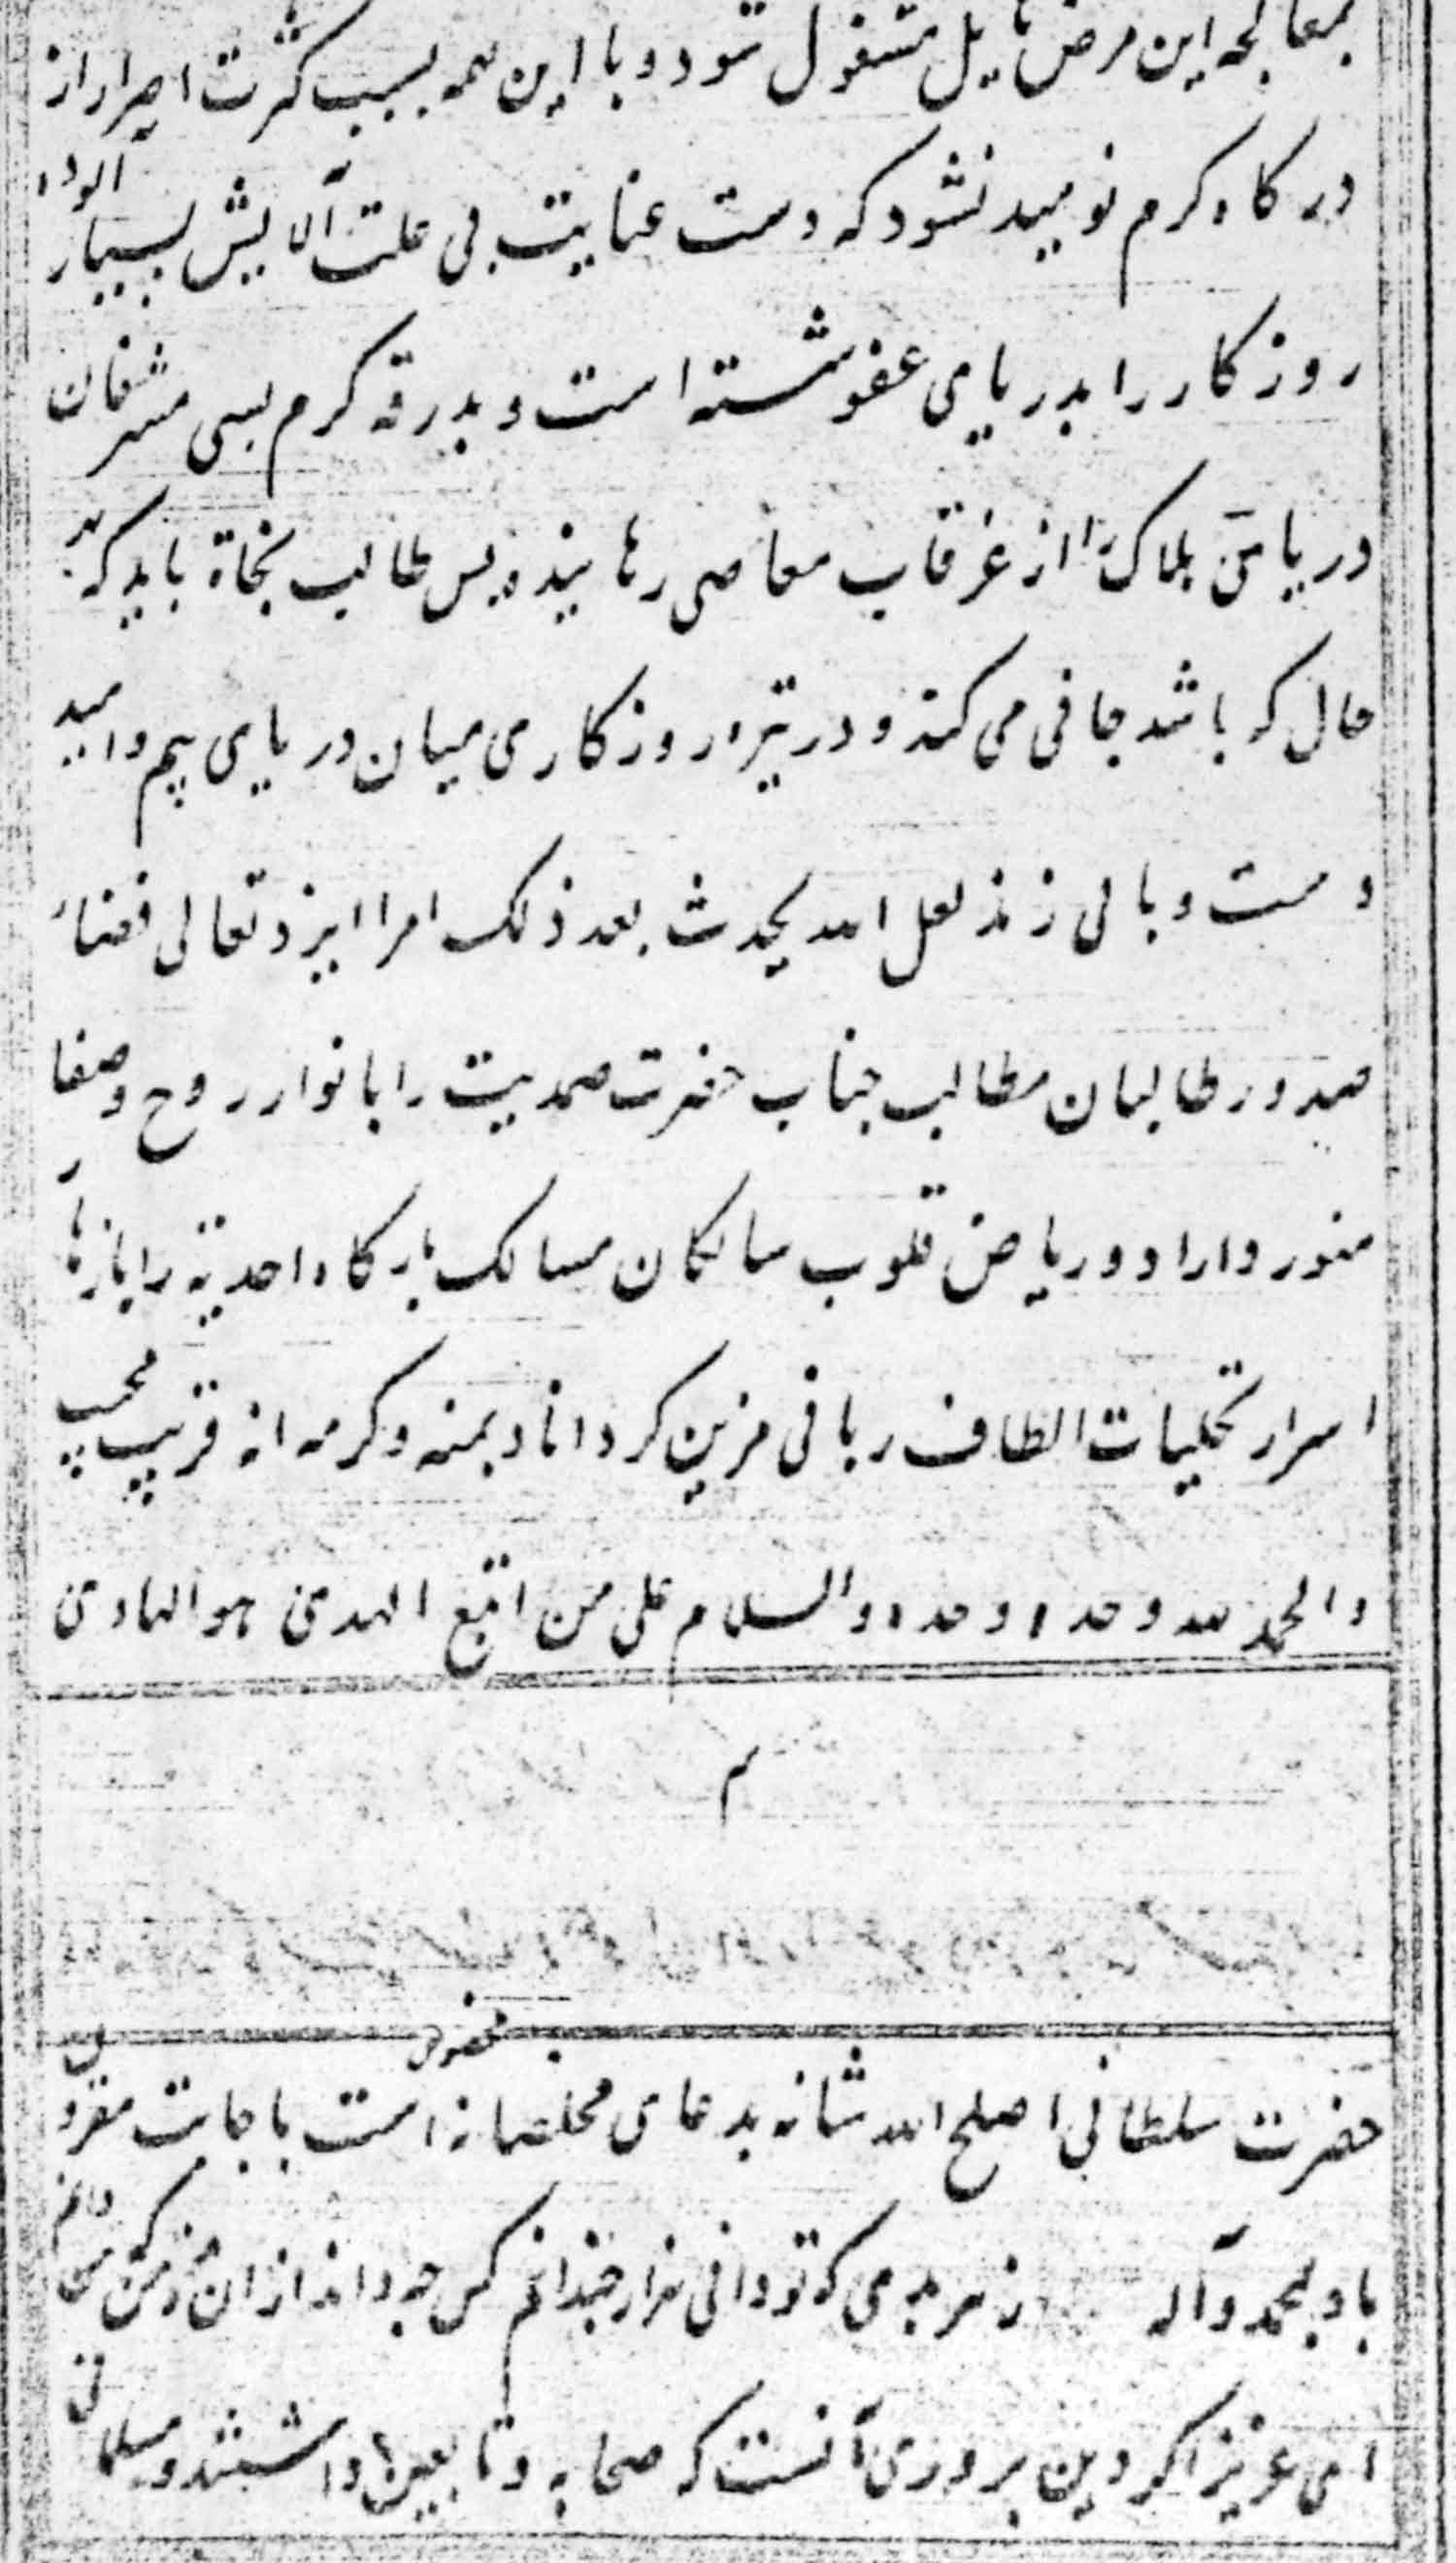 بمعالجه این مرض هایل مشغول شود و با این همه بسبب کثرت اصرار از
درکاه کرم نومید نشود که دست عنایت بی علت آلایش بسیار آلوده
روزکار را بدریای عفو شسته است و بدرقه کرم بسی مشرفان
دریای هلاک را از غرقاب معاصی رهانیده پس طالب نجاة باید که بهر
حال که باشد جانی می کند و در تیره روزکاری میان دریای بیم و امید
دست و بالی زند لعل الله یحدث بعد ذلک امرا ایزد تعالی فضاء
صدور طالبان مطالب جناب حضرت صمدیت را بانوار روح و صفا
منور داراد و ریاض قلوب سالکان مسالک بارکاه احدیة را بازهار
اسرار تجلیات الطاف ربانی مزین کرداناد بمنه و کرمه انه قریب مجیب
والحمد لله وحده وحده والسلام علی من اتبع الهدی هو الهادی
م
حضرت سلطانی اصلح الله شانه بدعای مخلصانه مخصوص است باجابت مقرون
باد بمحمد وآله ز هر بدی که تو دانی هزار چندانم کس چه داند از ان کونه کن من دانم
ای عزیز اکر دین پروری آنست که صحابه و تابعین داشتند و مسلمانی